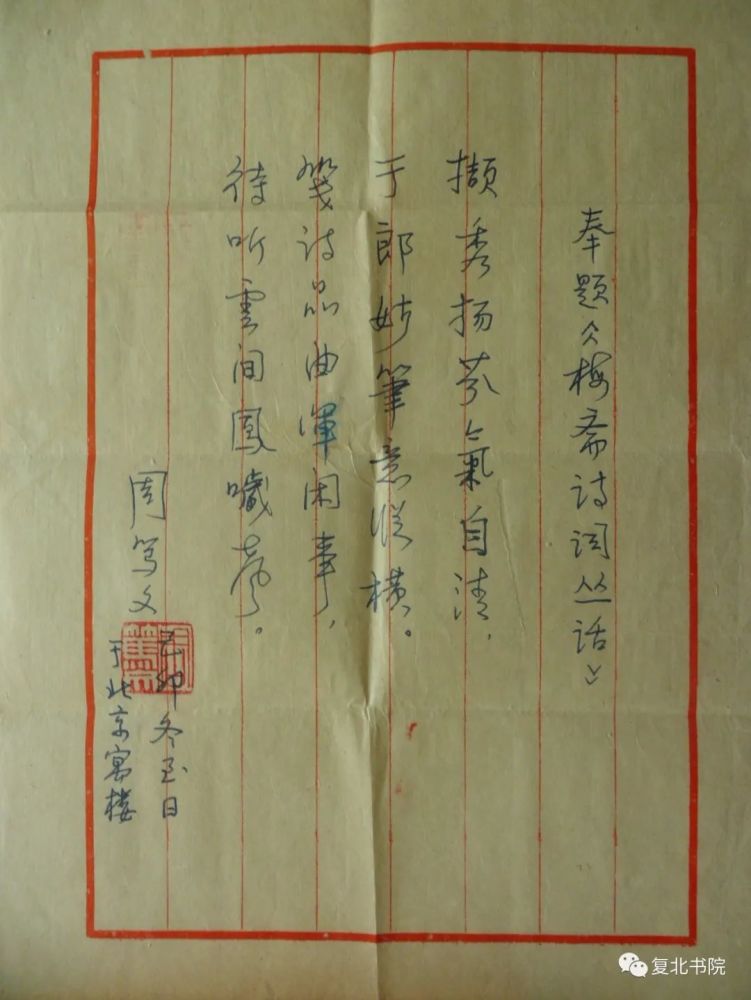 奉题《梅斋诗词丛话》
撷秀扬芬氣自清，
于郎妙筆意纵横。
笺诗品曲渾闲事，
待听雲间鳳噦声。
周笃文
己卯冬至日
于北京寓楼
复北书院